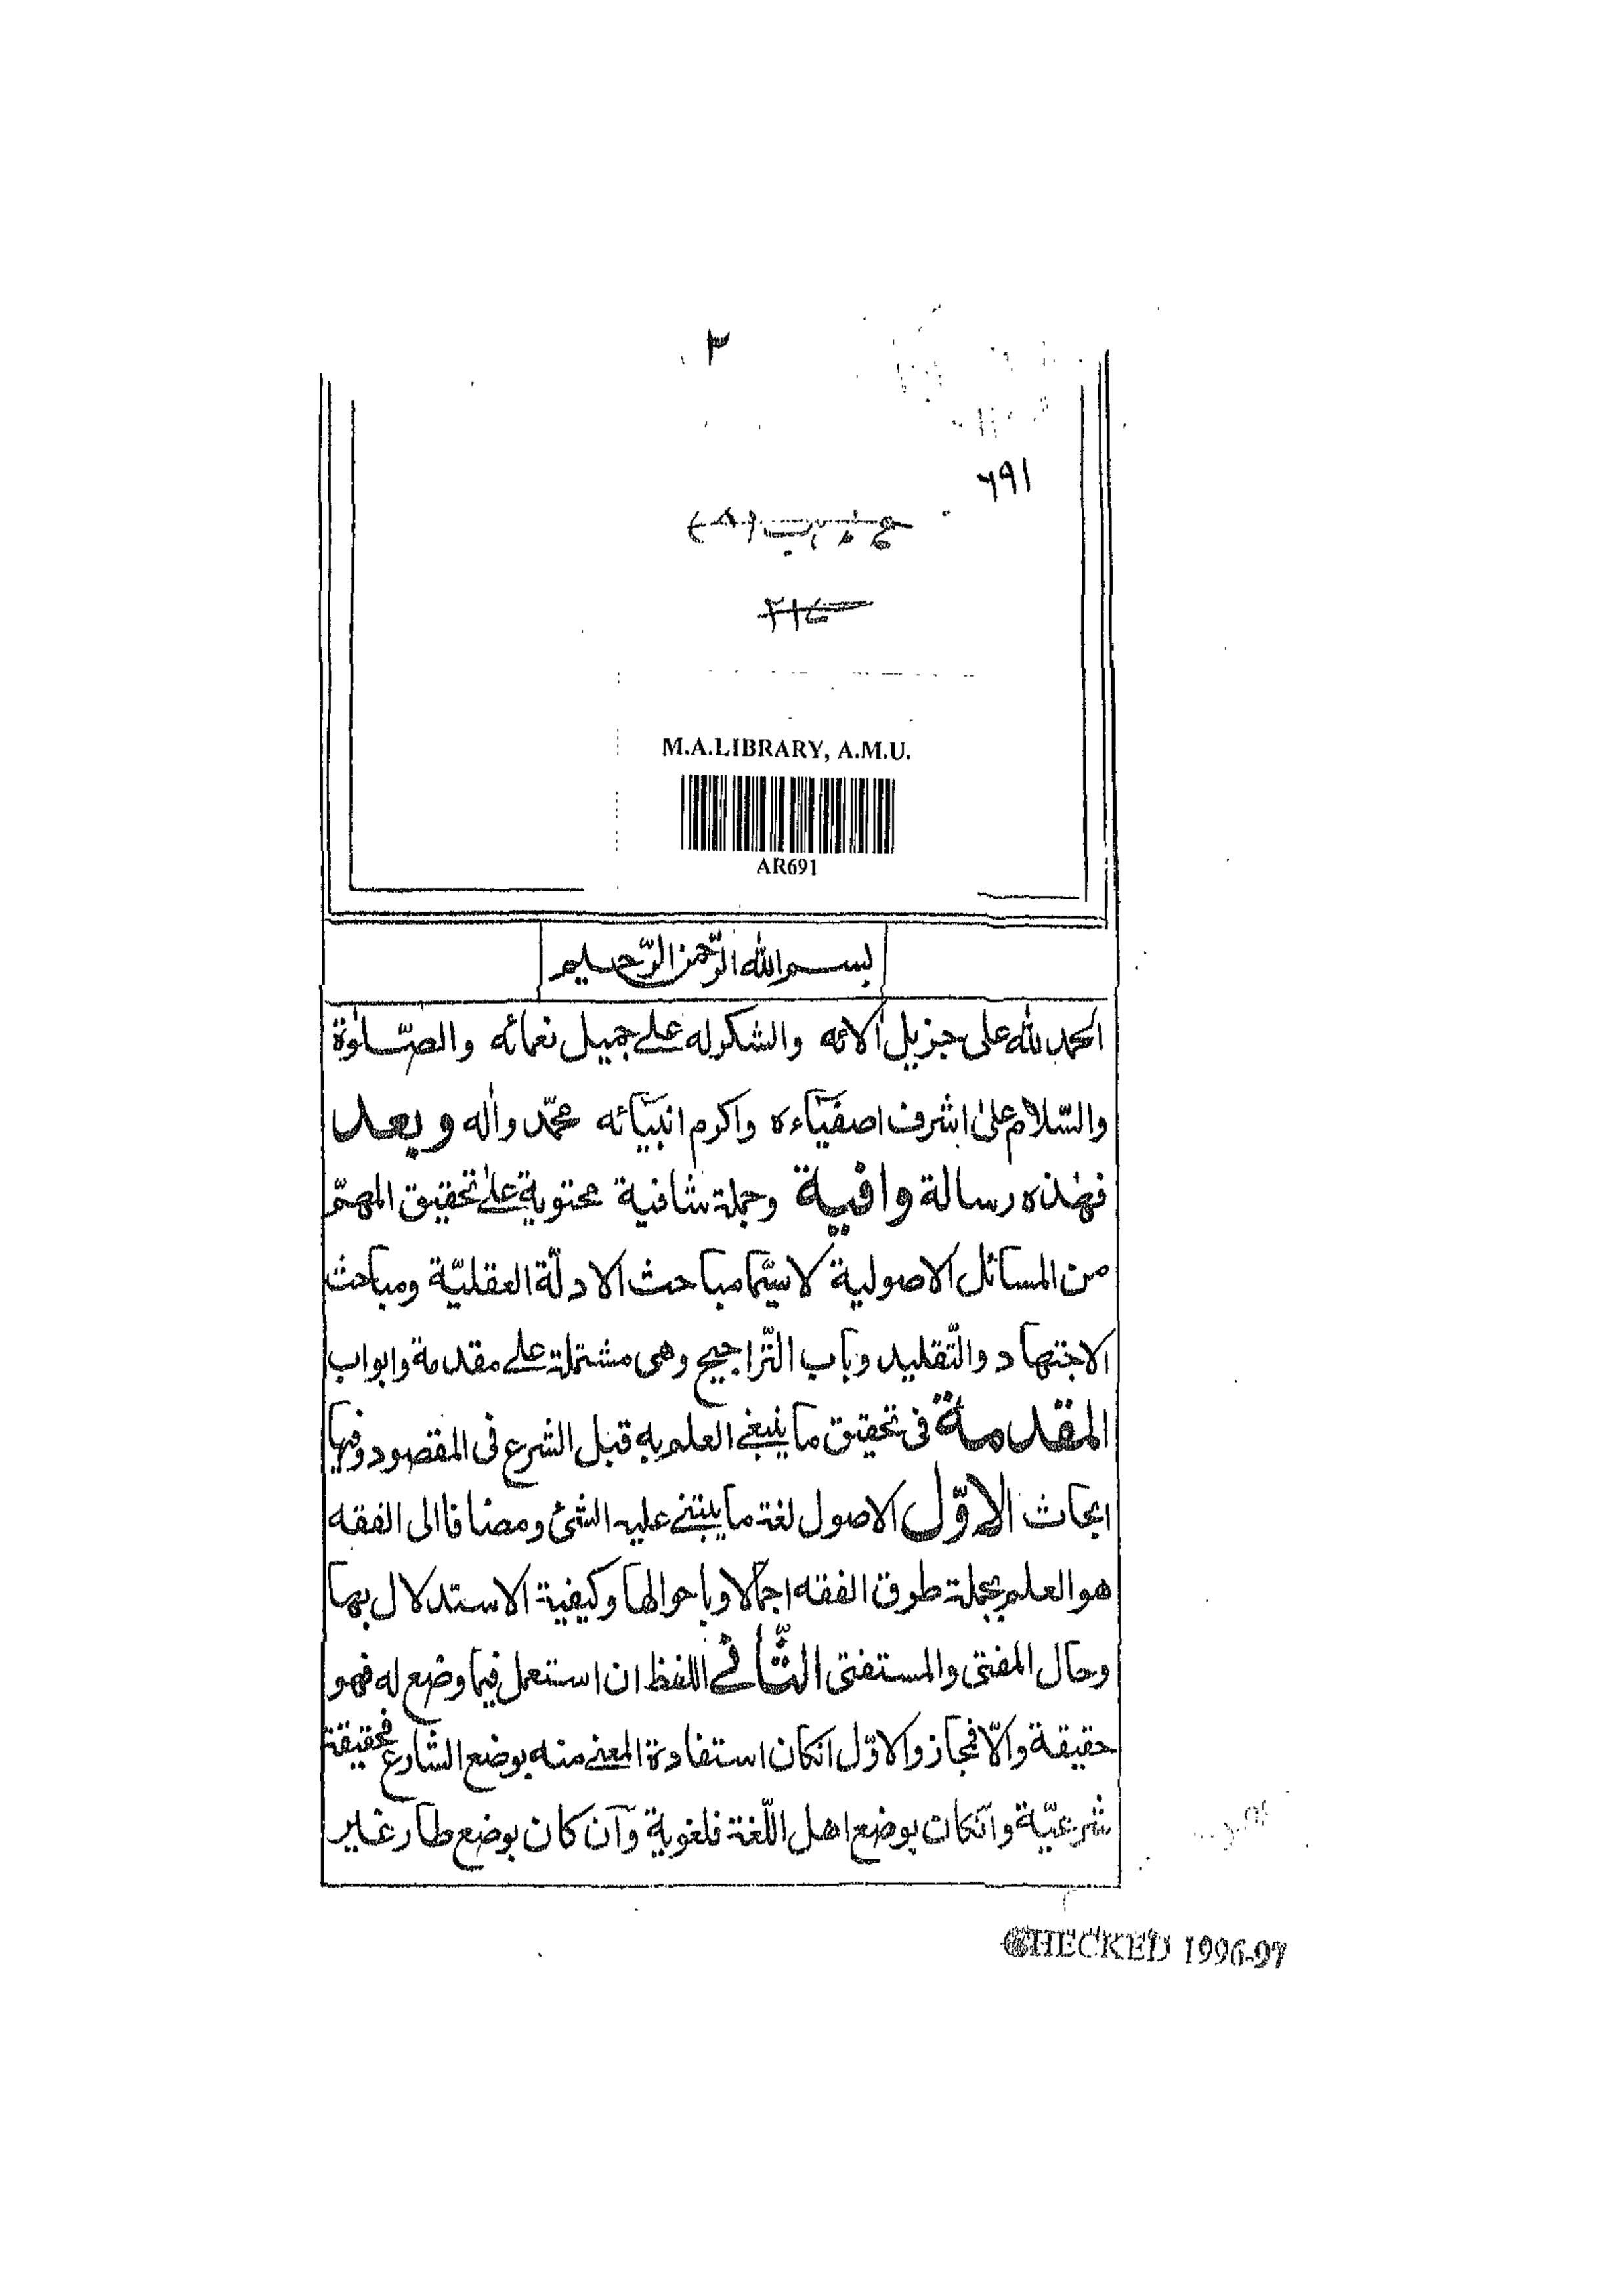 ٢
٦٩١
M.A.LIBRARY, A.M.U.
AR691
بسم الله الرّحمن الرّحيم
الحمد لله على جزيل الائه والشكر له على جميل نعمائه والصّلوٰة
والسّلام علىٰ اشرف اصفيَاءه واكرم انبيَائه محمّد واٰله وبعد
فهٰذه رسالة وافية وجملة شافية محتوية علىٰ تحقيق المهمّ
من المسائل الاصولية لاسيّما مباحث الادلّة العقليّة ومباحث
الاجتهاد والتّقليد وباب التّراجيح وهى مشتملة على مقدمة وابواب
المقدمة فى تحقيق ما ينبغى العلم به قبل الشرع فى المقصود وفيها
ابحاث الاوّل الاصول لغة ما يبتنى عليه الشئ ومضافا الى الفقه
هو العلم بجملة طرق الفقه اجمالا وباحوالها وكيفية الاستدلال بها
وحال المفتى والمستفتى الثّانى اللفظ ان استعمل فيما وضع له فهو
حقيقة والّا فمجاز والاوّل انكان استفادة المعنى منه بوضع الشارع فحقيقة
شرعيّة وانكان بوضع اهل اللّغة فلغوية وان كان بوضع طار غير
CHECKED 1996-97